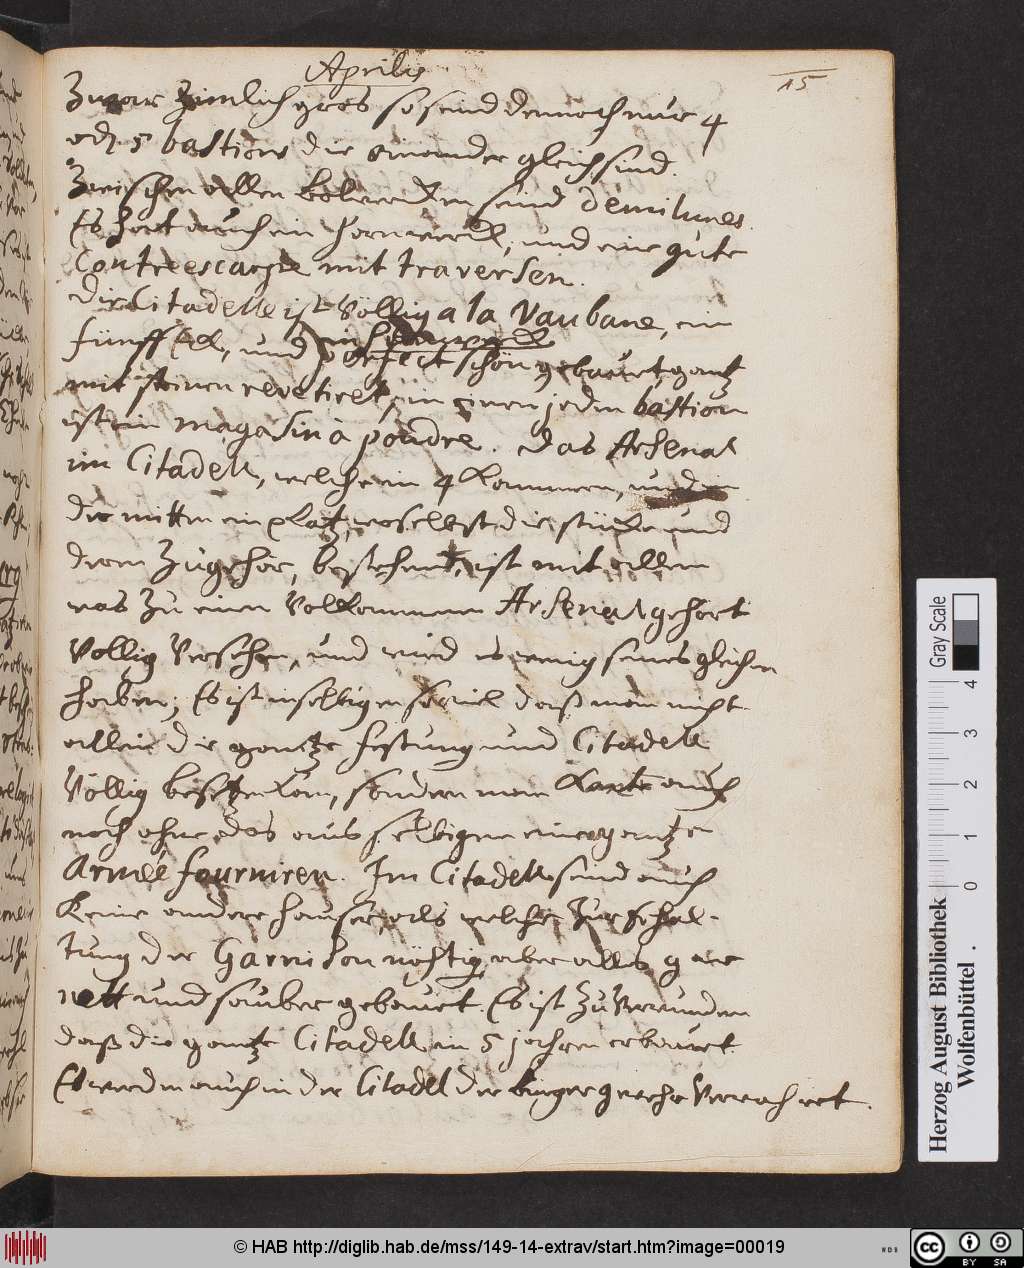 Aprilis
15
Zwar zimlich gros so seind dennoch nur 4
od 5 bastions die einander gleich sind.
Zwischen allen bolwercken seind demilunes.
Es hat auch ein hornwerck, und eine gute
Contreescarpe mit traversen.
Die Citadelle ist völlig a la Vaubane, ein
fünff Eck, und perfect schön gebauet gantz
mit steinen revetiret, in einen jeden bastion
ist ein magasin à poudre. Das Arsenal
im Citadell, welche in 4 Kammern, und in
der mitten ein platz, woselbst die stücke und
deren Zugehör, bestehend, ist mit allem
was zu einen Vollkommenen Arsenal gehört
Völlig Versehen, und wird es wenig seines gleichen
haben; Es ist in selbigen soviel daß man nicht
allein die gantze festung und Citadell
Völlig besetzen kan, sondern man könte auch
noch ohne das aus selbigen eine gantze
Armée fourniren. Im Citadell sind auch
keine andere häuser als welche zur Erhal-
tung der Garnison nöhtig, aber alles gar
nett und sauber gebauet. Es ist zu Verwundern
daß die gantze Citadell in 5 jahren erbauet.
Es werden auch in der Citadel der bürger gewehr Verwahret.
Herzog August Bibliothek
Wolfenbüttel
Gray Scale
0 1 2 3 4
© HAB http://diglib.hab.de/mss/149-14-extrav/start.htm?image=00019
cc BY SA